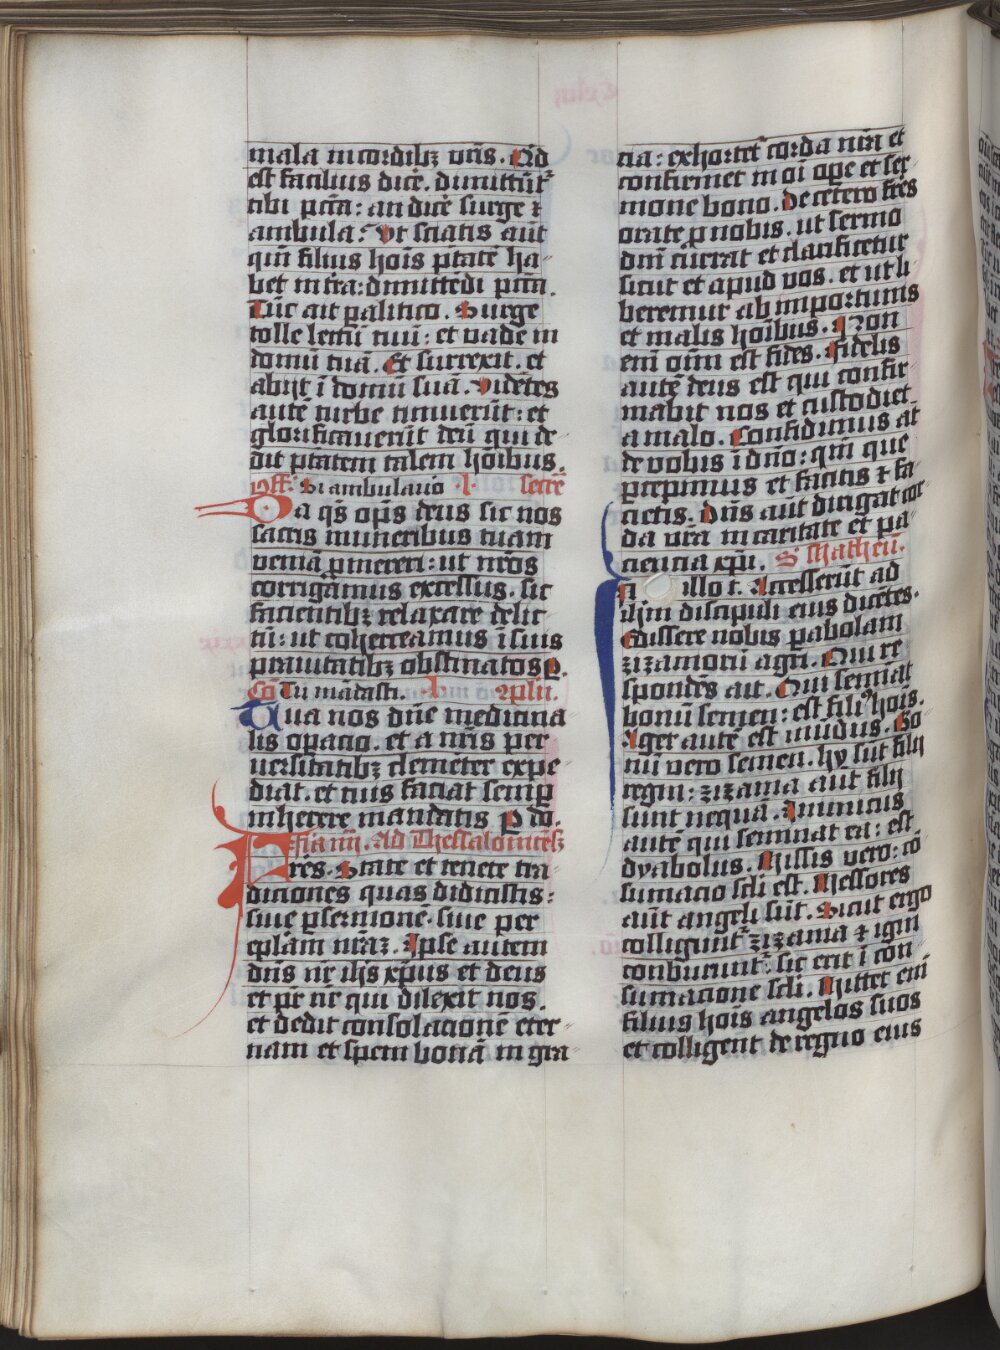 mala in cordibꝫ vr̄is. Qd
est facilius dicē. dimittūt᷑
tibi pctā: an dicē surge ⁊
ambula? Ut sciatis aūt
qm̄ filius hoīs ptātē ha
bet in trā: dimittēdi pctā.
Tūc ait palitico. Surge
tolle lectū tuū: et vade in
domū tuā. Et surrexit. et
abijt ī domū suā. Uidētes
autē turbe timuerūt: et
glorificauerūt deū qui de
dit ptātem talem hoībus.
Off. Si ambulauero secrē
Da qs̄ op̄s deus sic nos
sacris muneribus tuam
veniā ꝓmereri: ut nr̄os
corrigamus excessus. sic
facientibꝫ relaxare delic
tū: ut coherceamus ī suis
prauitatibꝫ obstinatos P.
Cō Tu mādasti. 9plu.
Tua nos dn̄e medicina
lis opacio. et a nr̄is per
uersitatibꝫ clemēter expe
diat. et tuis faciat semp
inherere mandatis P do.
Fīa iiij. Ad Thessalonicēs
Fres. State et tenete tra
diciones quas didicistis:
siue p sermonē. siue per
eplām nr̄aꝫ. Ipse autem
dn̄s nr̄ ih̄s xp̄us et deus
et pr̄ nr̄ qui dilexit nos.
et dedit consolacionē eter
nam et spem bonā in gra
cia: exhortet᷑ corda nr̄a et
confirmet in oī ope et ser
mone bono. De cetero fr̄es
orate p nobis. ut sermo
dn̄i currat et clarificetur
sicut et apud vos. et ut li
beremur ab importunis
et malis hoībus. Non
enī oīm est fides. Fidelis
autē deus est qui confir
mabit nos et custodiet
a malo. Confidimus aūt
de vobis ī dn̄o: qm̄ que
p̄cepimus et facitis ⁊ fa
cietis. Dn̄s aūt dirigat cor
da vr̄a in caritate et pa
ciencia xpī. S Matheū.
In illo t. Accesserūt ad
ih̄m discipuli eius dicētes.
Edissere nobis pabolam
zizaniorū agri. Qui re
spondēs ait. Qui seminat
bonū semen: est filiꝰ hoīs.
Ager autē est mūdus. Bo
nū vero semen. hy sūt filij
regni: zizania aūt filij
sunt nequā. Inimicus
autē qui seminat ea: est
dyabolus. Missis vero: cō
sumacio sc̄li est. Messores
aūt angeli sūt. Sicut ergo
colligunt᷑ zizania ⁊ igni
conburunt᷑: sic erit ī con
sumacione sc̄li. Mittet enī
filius hoīs angelos suos
et colligent de regno eius